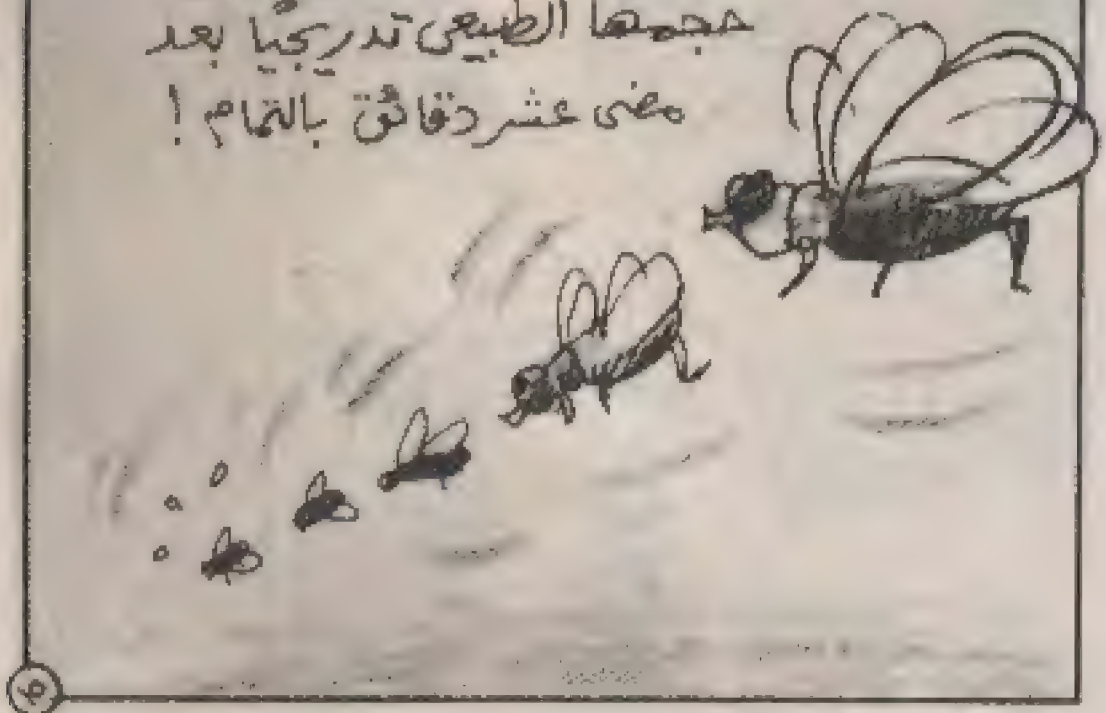 حجمها الطبيعى تدريجيًا بعد
مضى عشر دقائق بالتمام !